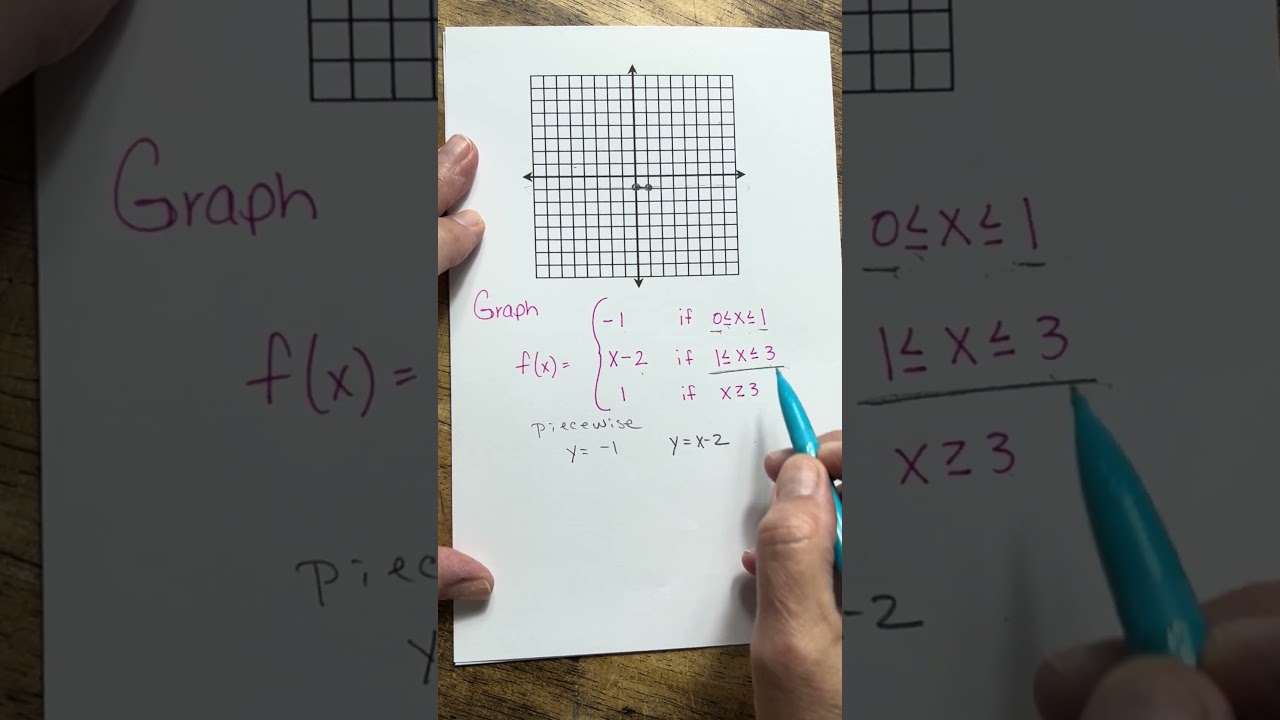 Graph
f(x) = { -1 if 0≤x≤1
x-2 if 1≤x≤3
1 if x≥3
piecewise
y = -1 y = x-2